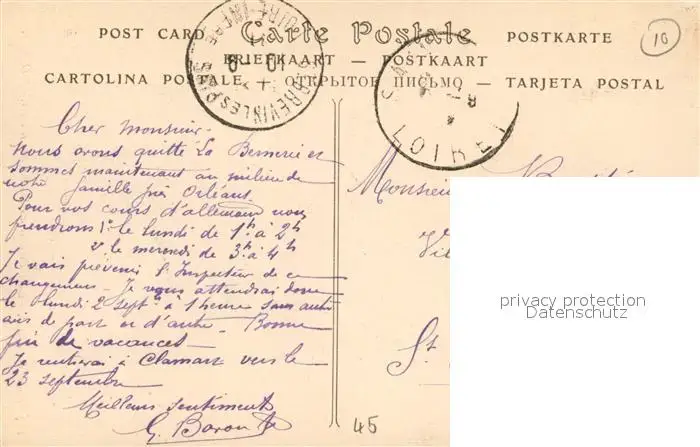 Carte Postale
POST CARD
POSTKARTE
BRIEFKAART — POSTKAART
CARTOLINA POSTALE — ОТКРЫТОЕ ПИСЬМО — TARJETA POSTAL
10
LOIRET
Cher Monsieur -
Nous avons quitté La Bernerie et
sommes maintenant au milieu de
notre famille près Orléans.
Pour nos cours d'allemand nous
prendrons 1º le lundi de 1h à 2h
2º le mercredi de 3h à 4h
Je vais prévenir l'Inspecteur de ce
changement - Je vous attendrai donc
le lundi 2 sept. à 1 heure sans autre
avis de part et d'autre - Bonne
fin de vacances -
Je rentrerai à Clamart vers le
23 septembre
Meilleurs sentiments
G. Baron
Monsieur
St
45
privacy protection
Datenschutz